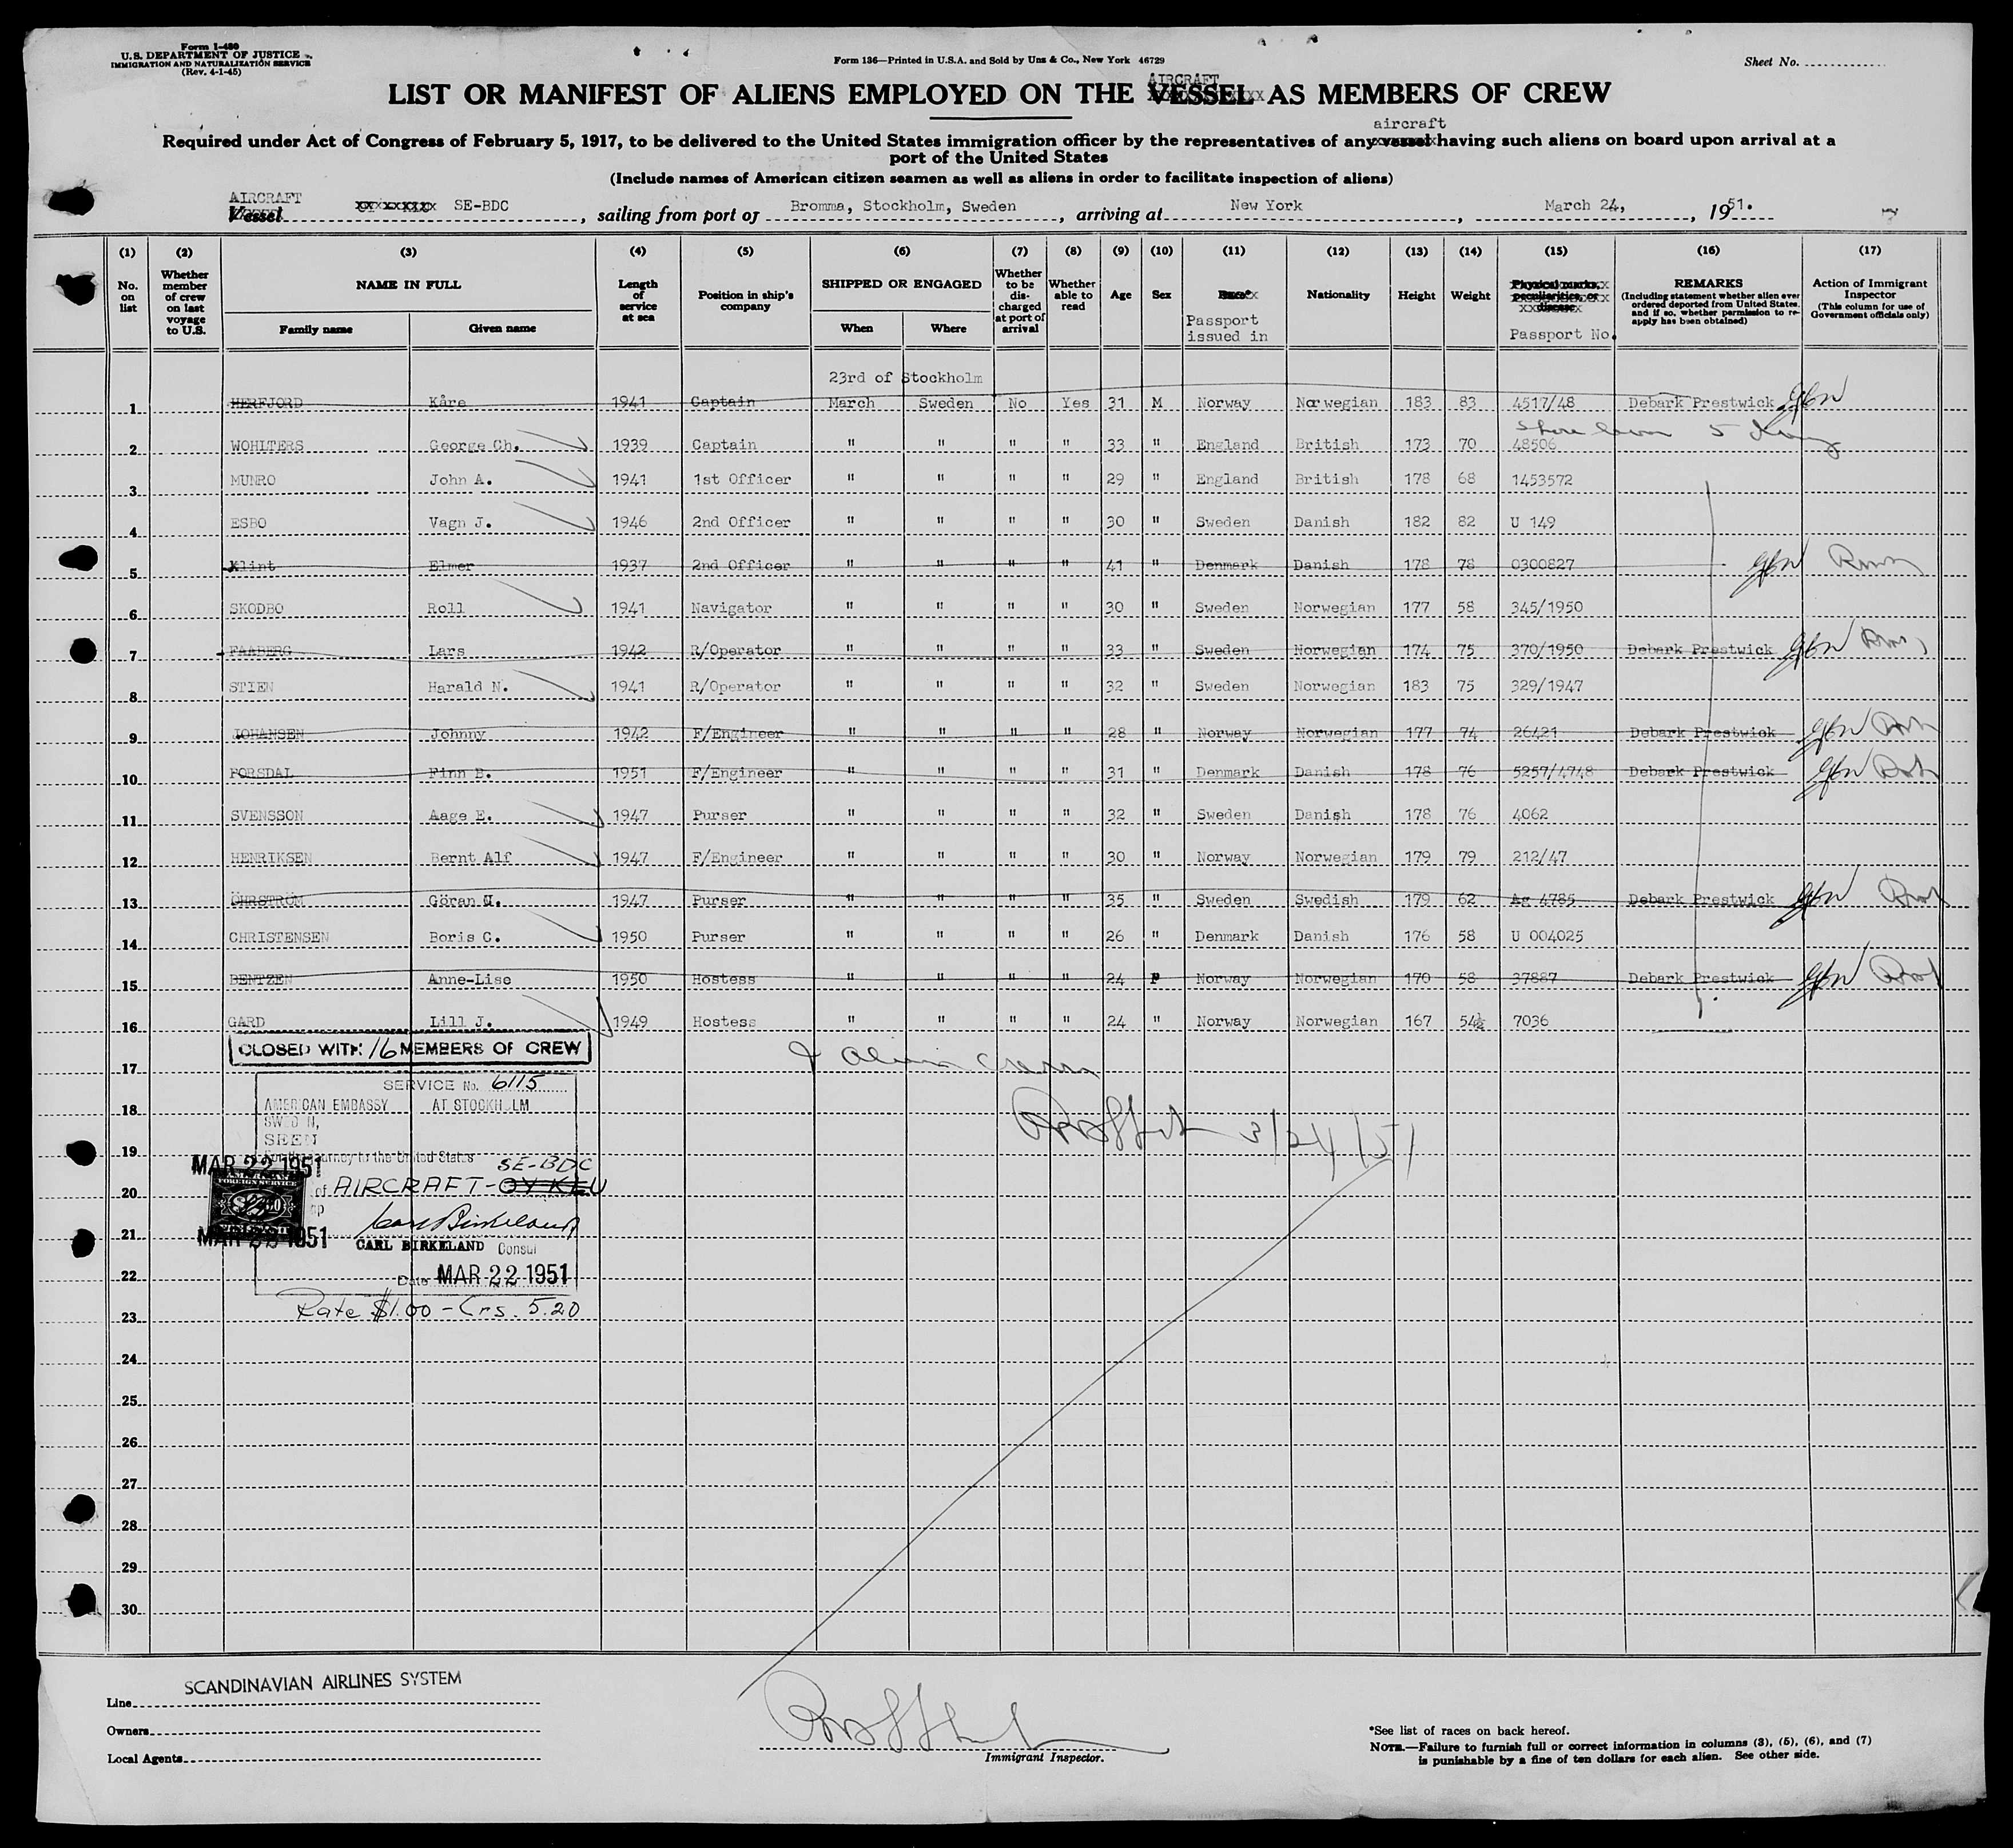 Form I-480
U. S. DEPARTMENT OF JUSTICE
IMMIGRATION AND NATURALIZATION SERVICE
(Rev. 4-1-45)
Form 136—Printed in U.S.A. and Sold by Unz & Co., New York 46729
Sheet No.
AIRCRAFT
LIST OR MANIFEST OF ALIENS EMPLOYED ON THE VESSEL AS MEMBERS OF CREW
aircraft
Required under Act of Congress of February 5, 1917, to be delivered to the United States immigration officer by the representatives of any vessel having such aliens on board upon arrival at a
port of the United States
(Include names of American citizen seamen as well as aliens in order to facilitate inspection of aliens)
AIRCRAFT
Vessel SE-BDC, sailing from port of Bromma, Stockholm, Sweden, arriving at New York, March 24, 1951.
(1) (2) (3) (4) (5) (6) (7) (8) (9) (10) (11) (12) (13) (14) (15) (16) (17)
No. on list
Whether member of crew on last voyage to U.S.
NAME IN FULL
Family name Given name
Length of service at sea
Position in ship's company
SHIPPED OR ENGAGED
When Where
Whether to be discharged at port of arrival
Whether able to read
Age
Sex
Race*
Passport issued in
Nationality
Height
Weight
Physical marks, peculiarities, or disease
Passport No.
REMARKS
(Including statement whether alien ever ordered deported from United States, and if so, whether permission to re-apply has been obtained)
Action of Immigrant Inspector
(This column for use of Government officials only)
23rd of Stockholm
1 HERFJORD Kåre 1941 Captain March Sweden No Yes 31 M Norway Norwegian 183 83 4517/48 Debark Prestwick
2 WOHLTERS George Ch. 1939 Captain " " " " 33 " England British 173 70 48506
3 MUNRO John A. 1941 1st Officer " " " " 29 " England British 178 68 1453572
4 ESBO Vagn J. 1946 2nd Officer " " " " 30 " Sweden Danish 182 82 U 149
5 Klint Elmer 1937 2nd Officer " " " " 41 " Denmark Danish 178 78 0300827
6 SKODBO Roll 1941 Navigator " " " " 30 " Sweden Norwegian 177 58 345/1950
7 FAABERG Lars 1942 R/Operator " " " " 33 " Sweden Norwegian 174 75 370/1950 Debark Prestwick
8 STIEN Harald N. 1941 R/Operator " " " " 32 " Sweden Norwegian 183 75 329/1947
9 JOHANSEN Johnny 1942 F/Engineer " " " " 28 " Norway Norwegian 177 74 26421 Debark Prestwick
10 FORSDAL Finn B. 1951 F/Engineer " " " " 31 " Denmark Danish 178 76 5257/4748 Debark Prestwick
11 SVENSSON Aage E. 1947 Purser " " " " 32 " Sweden Danish 178 76 4062
12 HENRIKSEN Bernt Alf 1947 F/Engineer " " " " 30 " Norway Norwegian 179 79 212/47
13 ÖHRSTRÖM Göran U. 1947 Purser " " " " 35 " Sweden Swedish 179 62 Ag 4785 Debark Prestwick
14 CHRISTENSEN Boris C. 1950 Purser " " " " 26 " Denmark Danish 176 58 U 004025
15 BENTZEN Anne-Lise 1950 Hostess " " " " 24 F Norway Norwegian 170 58 37887 Debark Prestwick
16 GARD Lill J. 1949 Hostess " " " " 24 " Norway Norwegian 167 54½ 7036
CLOSED WITH 16 MEMBERS OF CREW
17
SERVICE No. 6115
AMERICAN EMBASSY AT STOCKHOLM
18
SWEDEN,
SEEN
3/24/51
19
For the journey to the United States
MAR 22 1951
SE-BDC
20
of AIRCRAFT-OY KLU
FOREIGN SERVICE
21
Carl Birkeland
MAR 22 1951
CARL BIRKELAND Consul
22
Date MAR 22 1951
Rate $1.00 - Crs. 5.20
23
24
25
26
27
28
29
30
Line SCANDINAVIAN AIRLINES SYSTEM
Owners
Local Agents
Immigrant Inspector.
*See list of races on back hereof.
NOTE.—Failure to furnish full or correct information in columns (3), (5), (6), and (7)
is punishable by a fine of ten dollars for each alien. See other side.